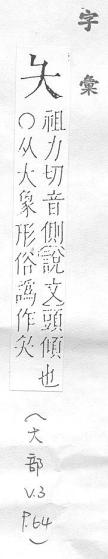 字彙
夨
祖力切音側說文頭傾也
○从大象形俗譌作夨
(大部
V.3
P.64
)